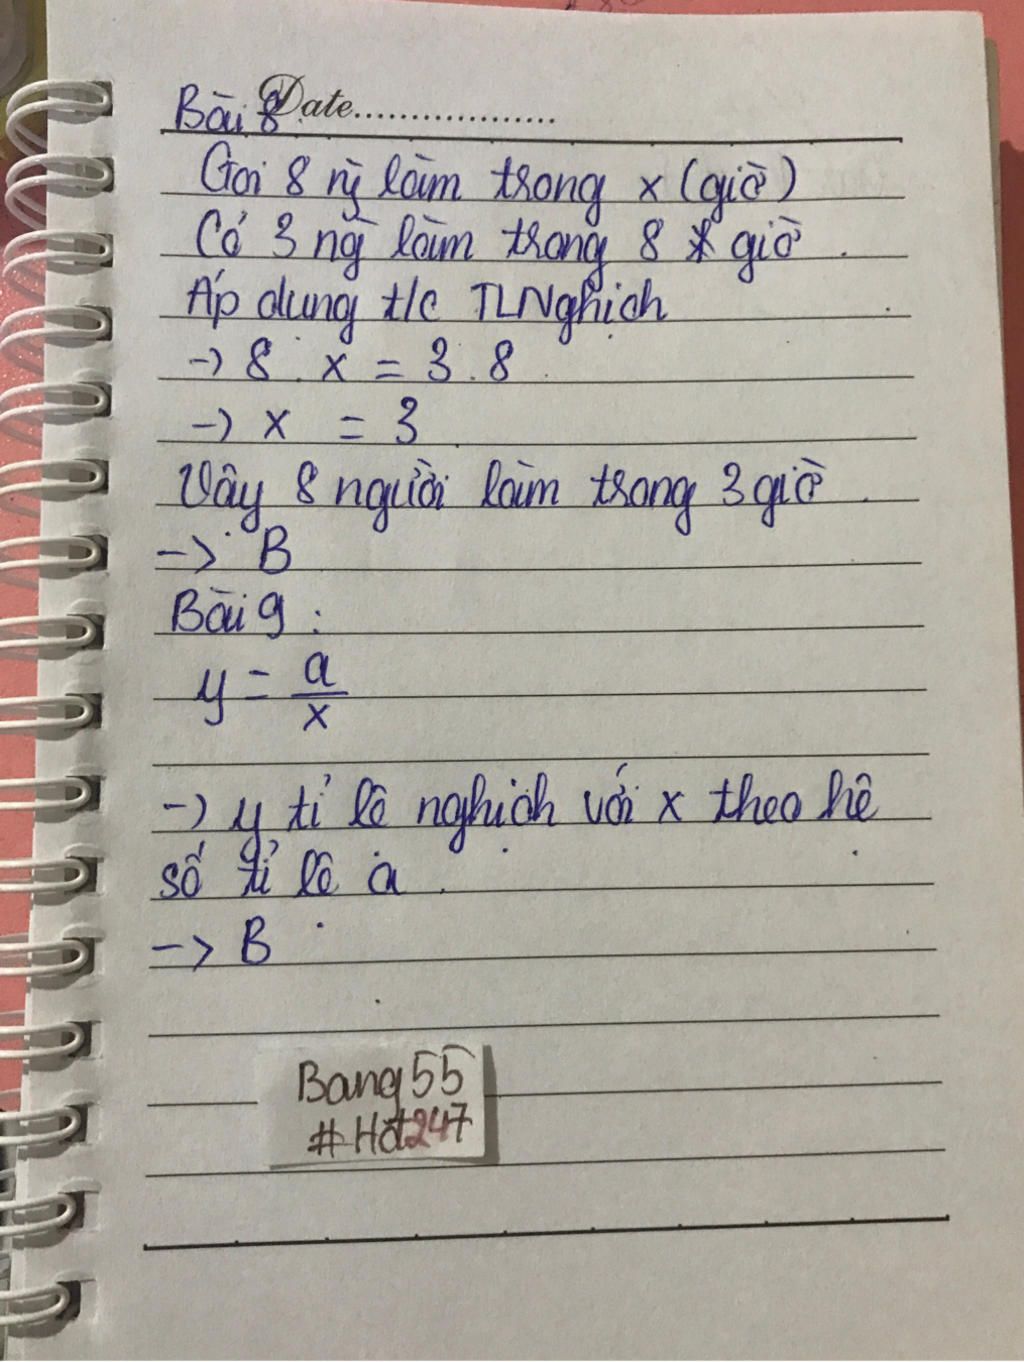 Date..................
Bài 8
Gọi 8 ng̀ làm trong x (giờ)
Có 3 ng̀ làm trong 8 giờ.
Áp dụng t/c TLNghịch
-> 8 . x = 3 . 8
-> x = 3
Vậy 8 người làm trong 3 giờ.
-> B
Bài 9 :
y = a/x
-> y tỉ lệ nghịch với x theo hệ
số tỉ lệ a.
-> B
Bang55
#Hot247